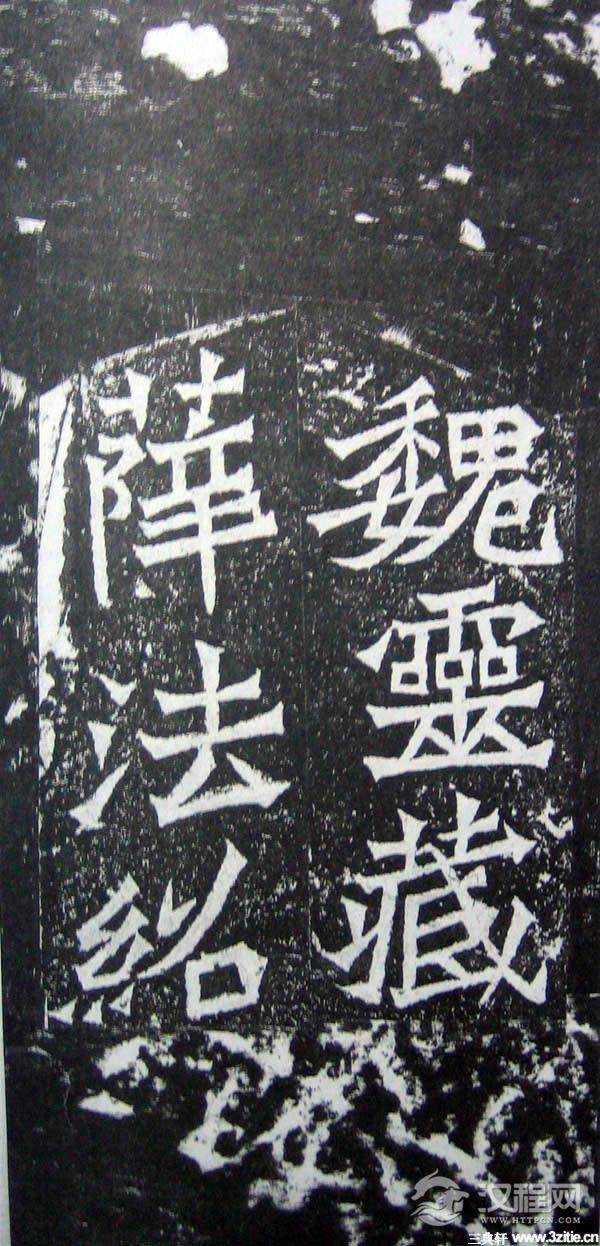 魏靈藏
薛法紹
汉程网
WWW.HTTPCN.COM
三典轩 www.3zitie.cn